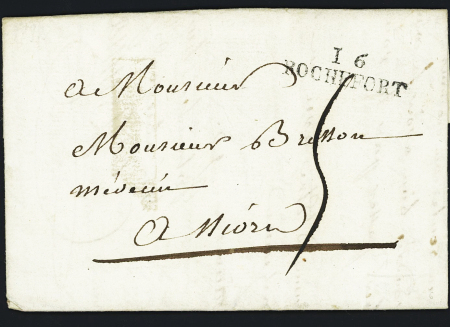 1 6
ROCHEFORT
a Monsieur
Monsieur Brisson
médecin
A Niort
5